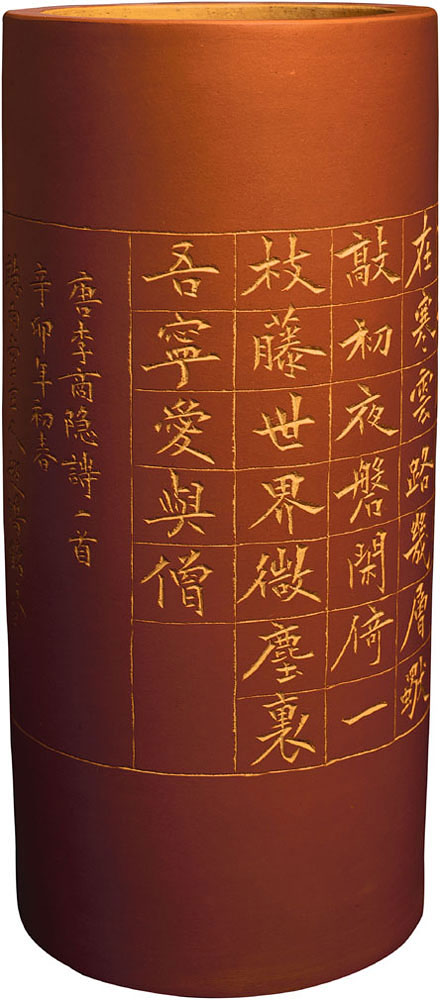 在寒雲路幾層
敲初夜磐閑倚一
枝藤世界微塵裏
吾寧愛與僧
唐李商隐詩二首
辛卯年初春